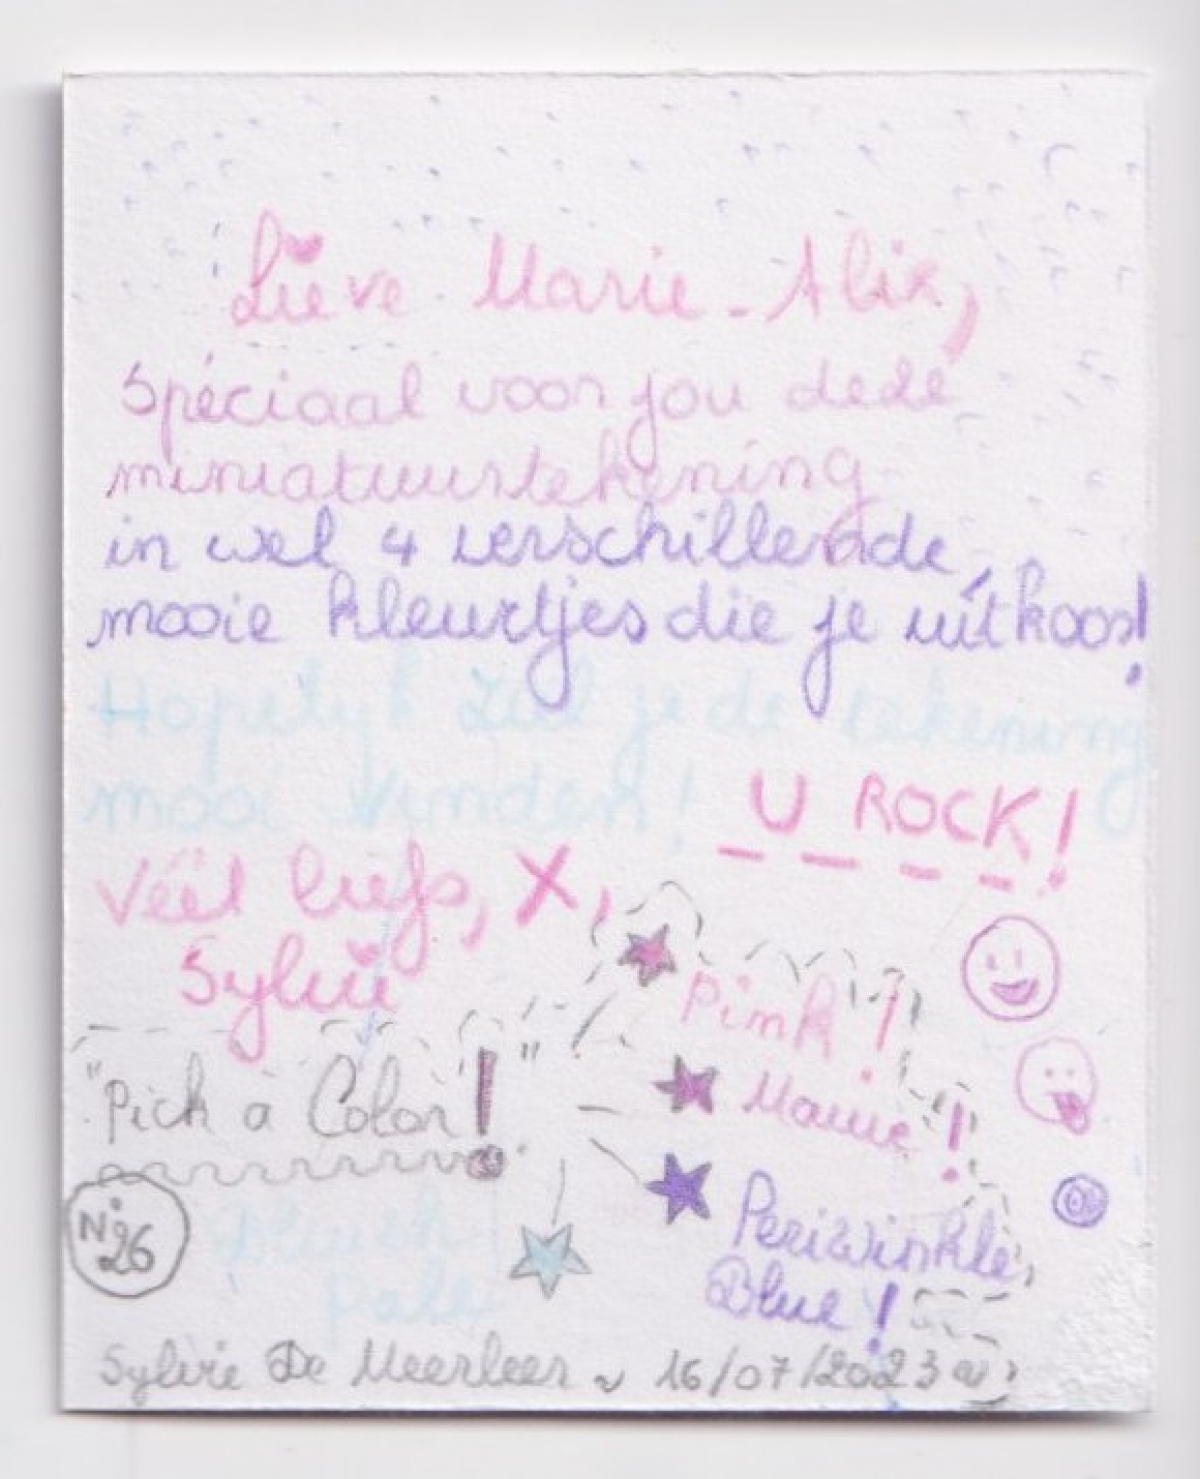 Lieve Marie-Alix,
Spéciaal voor jou dede
miniatuurtekening
in wel 4 verschillende,
mooie kleurtjes die je uitkoos!
Hopelijk zal je de tekening
mooi vinden!
U ROCK!
Véél liefs, X,
Sylvie
Pink!
"Pick a Color!"
Mauve!
N° 26
Periwinkle
Blue!
Pale
Sylvie De Meerleer ~ 16/07/2023 ~